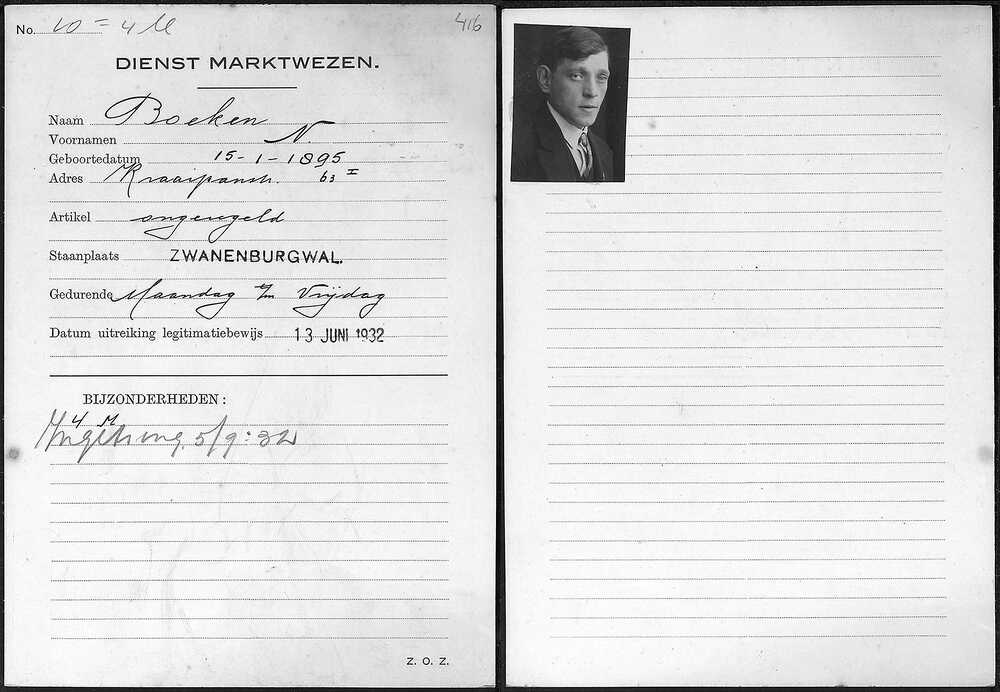 No. 10 = 4 M
416
DIENST MARKTWEZEN.
Naam Boeken
Voornamen N.
Geboortedatum 15-1-1895
Adres Kraaipanstr. 63 I
Artikel ongeregeld
Staanplaats ZWANENBURGWAL.
Gedurende Maandag t/m Vrijdag
Datum uitreiking legitimatiebewijs 13 JUNI 1932
BIJZONDERHEDEN:
4 M
5/9:32
Z. O. Z.